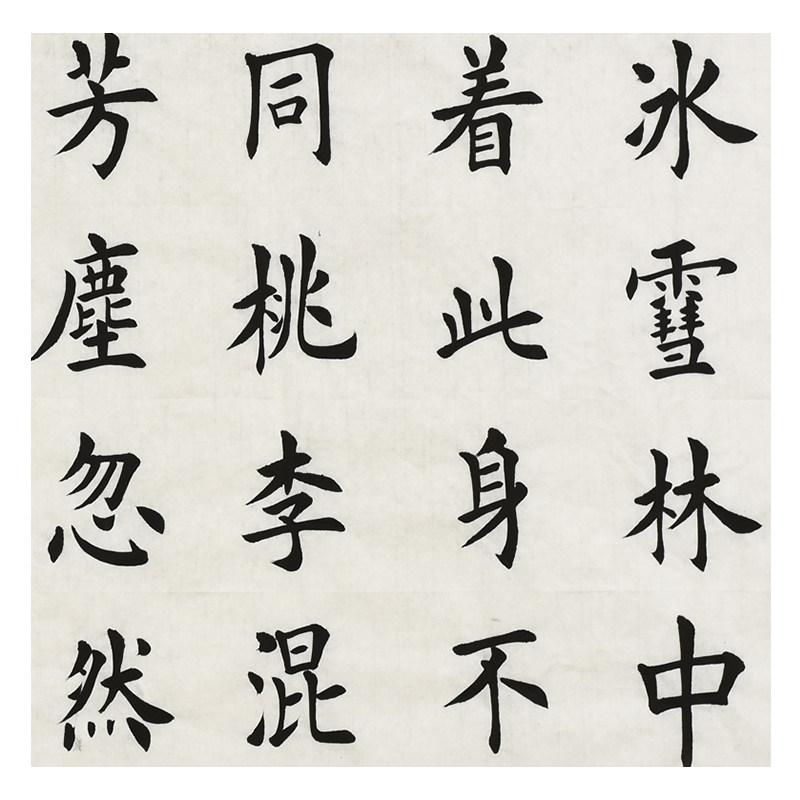 冰雪林中
着此身不
同桃李混
芳塵忽然